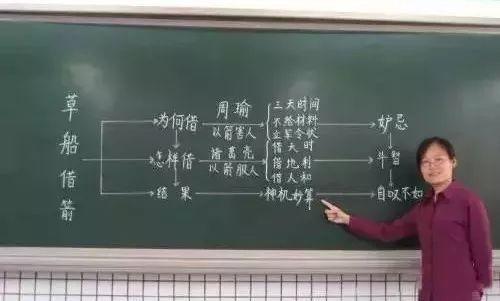 草船借箭
为何借
周瑜
以箭害人
三天时间
不给材料
立军令状
妒忌
怎样借
诸葛亮
以箭服人
借天时
借地利
借人和
斗智
结果
神机妙算
自叹不如